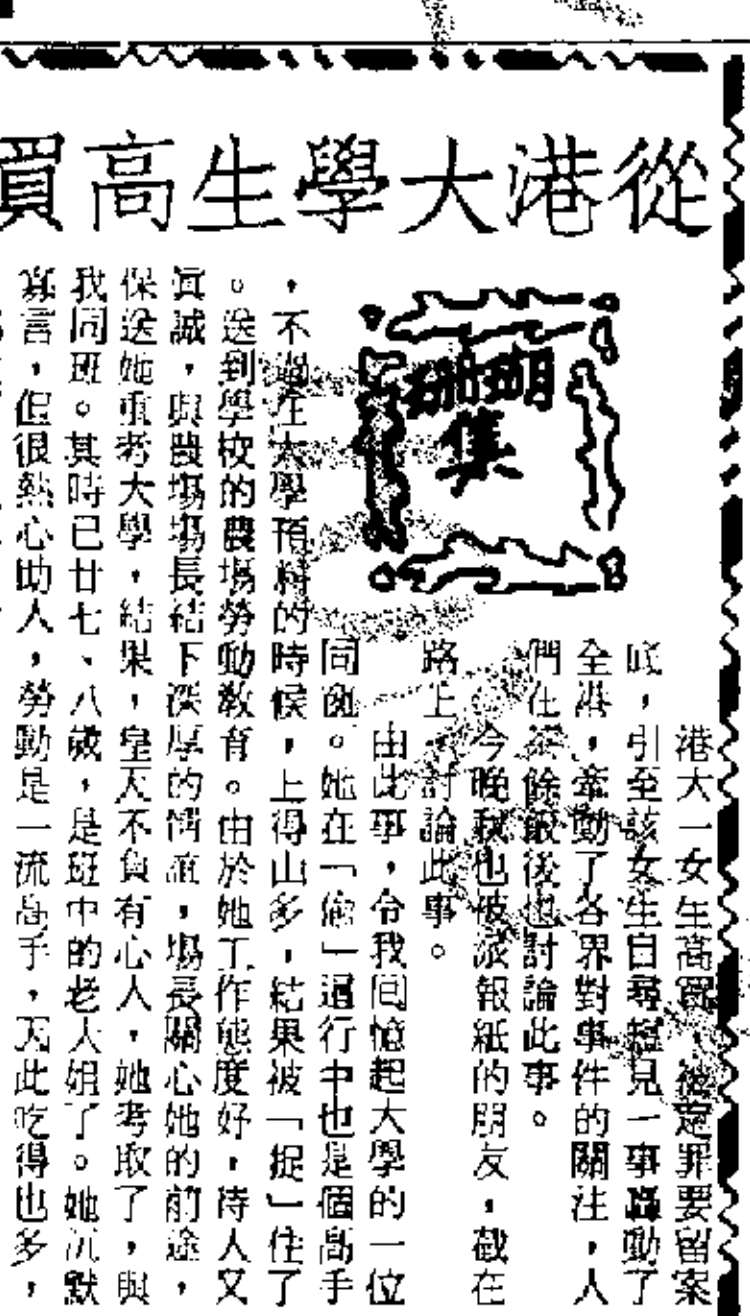 從港大學生高買
珊瑚
集
港大一女生高買，被定罪要留案
底，引至該女生自尋短見一事轟動了
全港，牽動了各界對事件的關注，人
們在茶餘飯後也討論此事。
今晚我也被派報紙的朋友，截在
路上，討論此事。
由此事，令我回憶起大學的一位
同窗。她在「偷」這行中也是個高手
，不過在大學預科的時候，上得山多，結果被「捉」住了
。送到學校的農場勞動教育。由於她工作態度好，待人又
眞誠，與農場場長結下深厚的情誼，場長關心她的前途，
保送她重考大學，結果，皇天不負有心人，她考取了，與
我同班。其時已廿七、八歲，是班中的老大姐了。她沉默
寡言，但很熱心助人，勞動是一流高手，因此吃得也多，